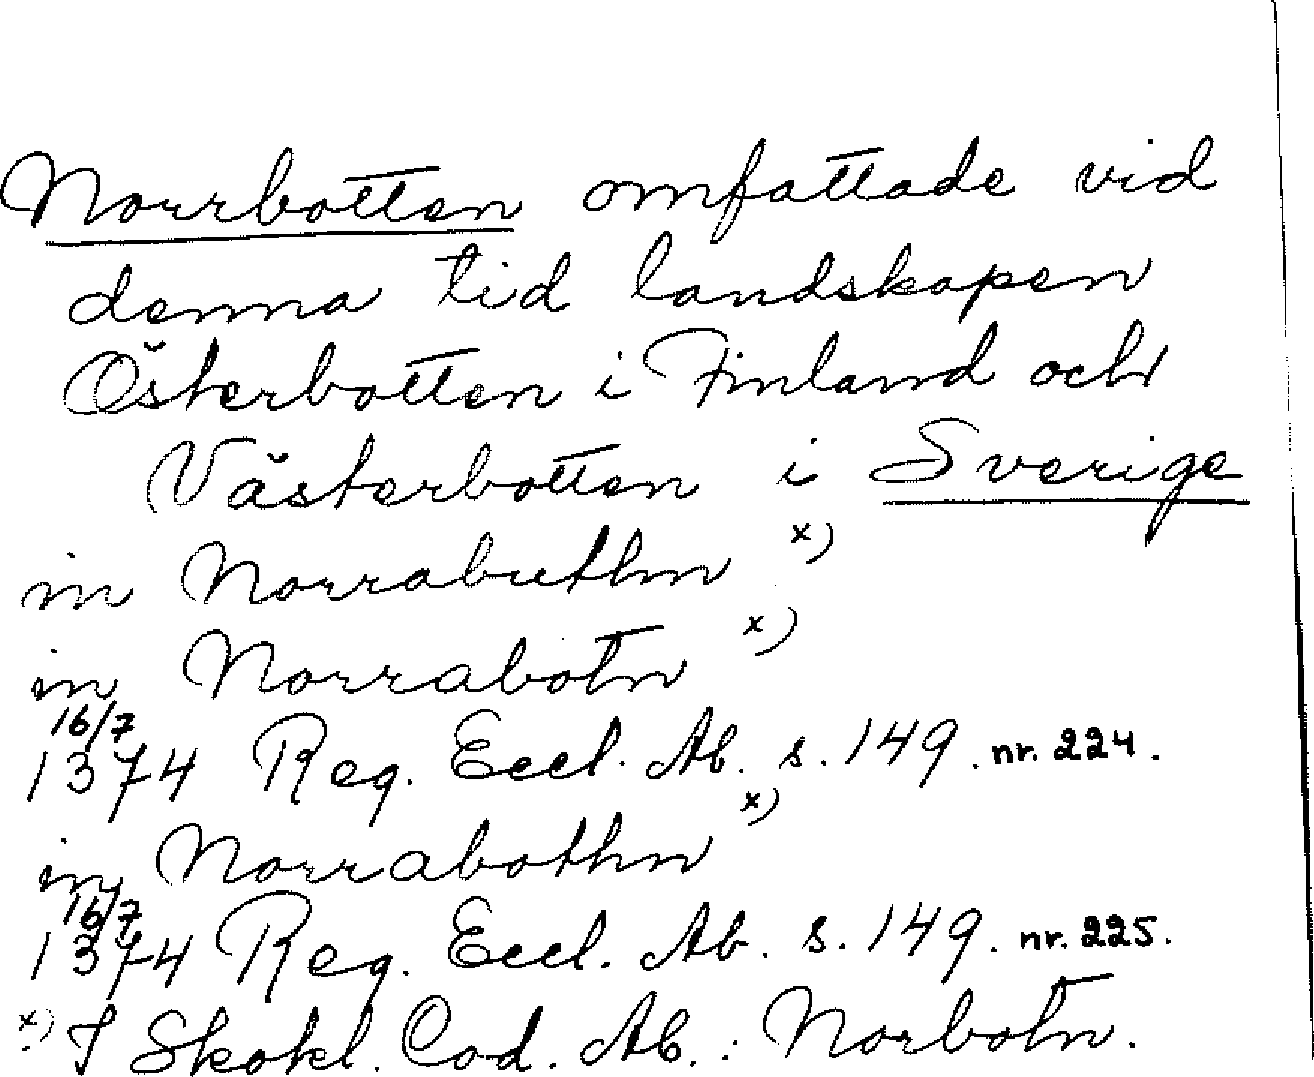 Norrbotten omfattade vid
denna tid landskapen
Österbotten i Finland och
Västerbotten i Sverige
in Norrabuthn x)
in Norrabotn x)
16/7
1374 Reg. Eccl. Ab. s. 149. nr. 224.
in Norrabothn x)
16/7
1374 Reg. Eccl. Ab. s. 149. nr. 225.
x) I Skokl. Cod. Ab. : Norbotn.